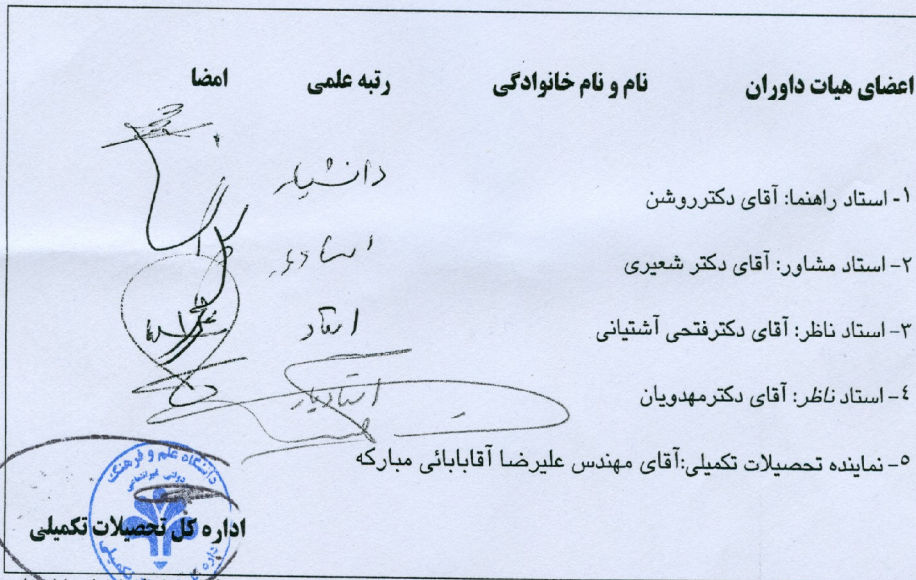 اعضای هیات داوران نام و نام خانوادگی رتبه علمی امضا
۱- استاد راهنما: آقای دکترروشن دانشیار
۲- استاد مشاور: آقای دکتر شعیری
۳- استاد ناظر: آقای دکترفتحی آشتیانی استاد
۴- استاد ناظر: آقای دکترمهدویان استادیار
۵- نماینده تحصیلات تکمیلی:آقای مهندس علیرضا آقابابائی مبارکه
دانشگاه علم و فرهنگ
اداره کل تحصیلات تکمیلی